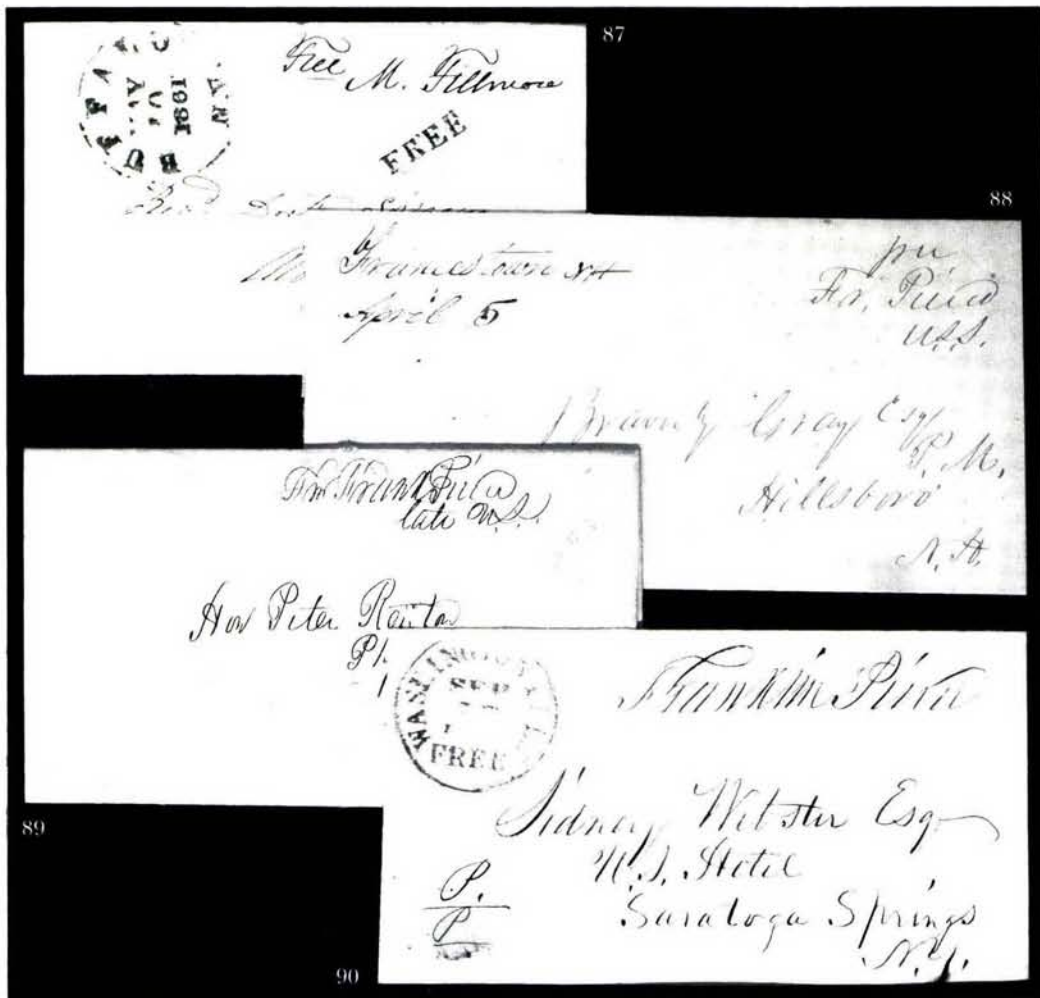 87
BUFFALO N.Y.
MAY
1861
Free M. Fillmore
FREE
88
Francestown NH
April 5
free
Fr. Pierce
U.S.S.
Gray Esq
P.M.
Hillsboro
N.H.
Fr Frank Pierce
late U.S.S.
Hon Peter Renton
89
WASHINGTON
SEP
FREE
Franklin Pierce
Sidney Webster Esq
U.S. Hotel
Saratoga Springs
N.Y.
P.
P
90